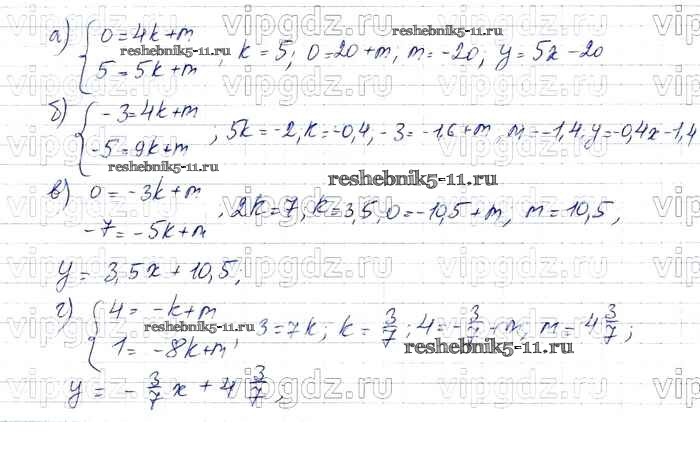 а) { 0 = 4k + m
5 = 5k + m , k = 5; 0 = 20 + m; m = -20; y = 5x - 20
reshebnik5-11.ru
б) { -3 = 4k + m
-5 = 9k + m , 5k = -2, k = -0,4, -3 = -1,6 + m, m = -1,4. y = -0,4x - 1,4
reshebnik5-11.ru
reshebnik5-11.ru
в) 0 = -3k + m
-7 = -5k + m , 2k = 7, k = 3,5, 0 = -10,5 + m, m = 10,5,
y = 3,5x + 10,5;
г) { 4 = -k + m
1 = -8k + m , 3 = 7k; k = 3/7; 4 = -3/7 + m, m = 4 3/7;
reshebnik5-11.ru
reshebnik5-11.ru
y = -3/7 x + 4 3/7;
vipgdz.ru